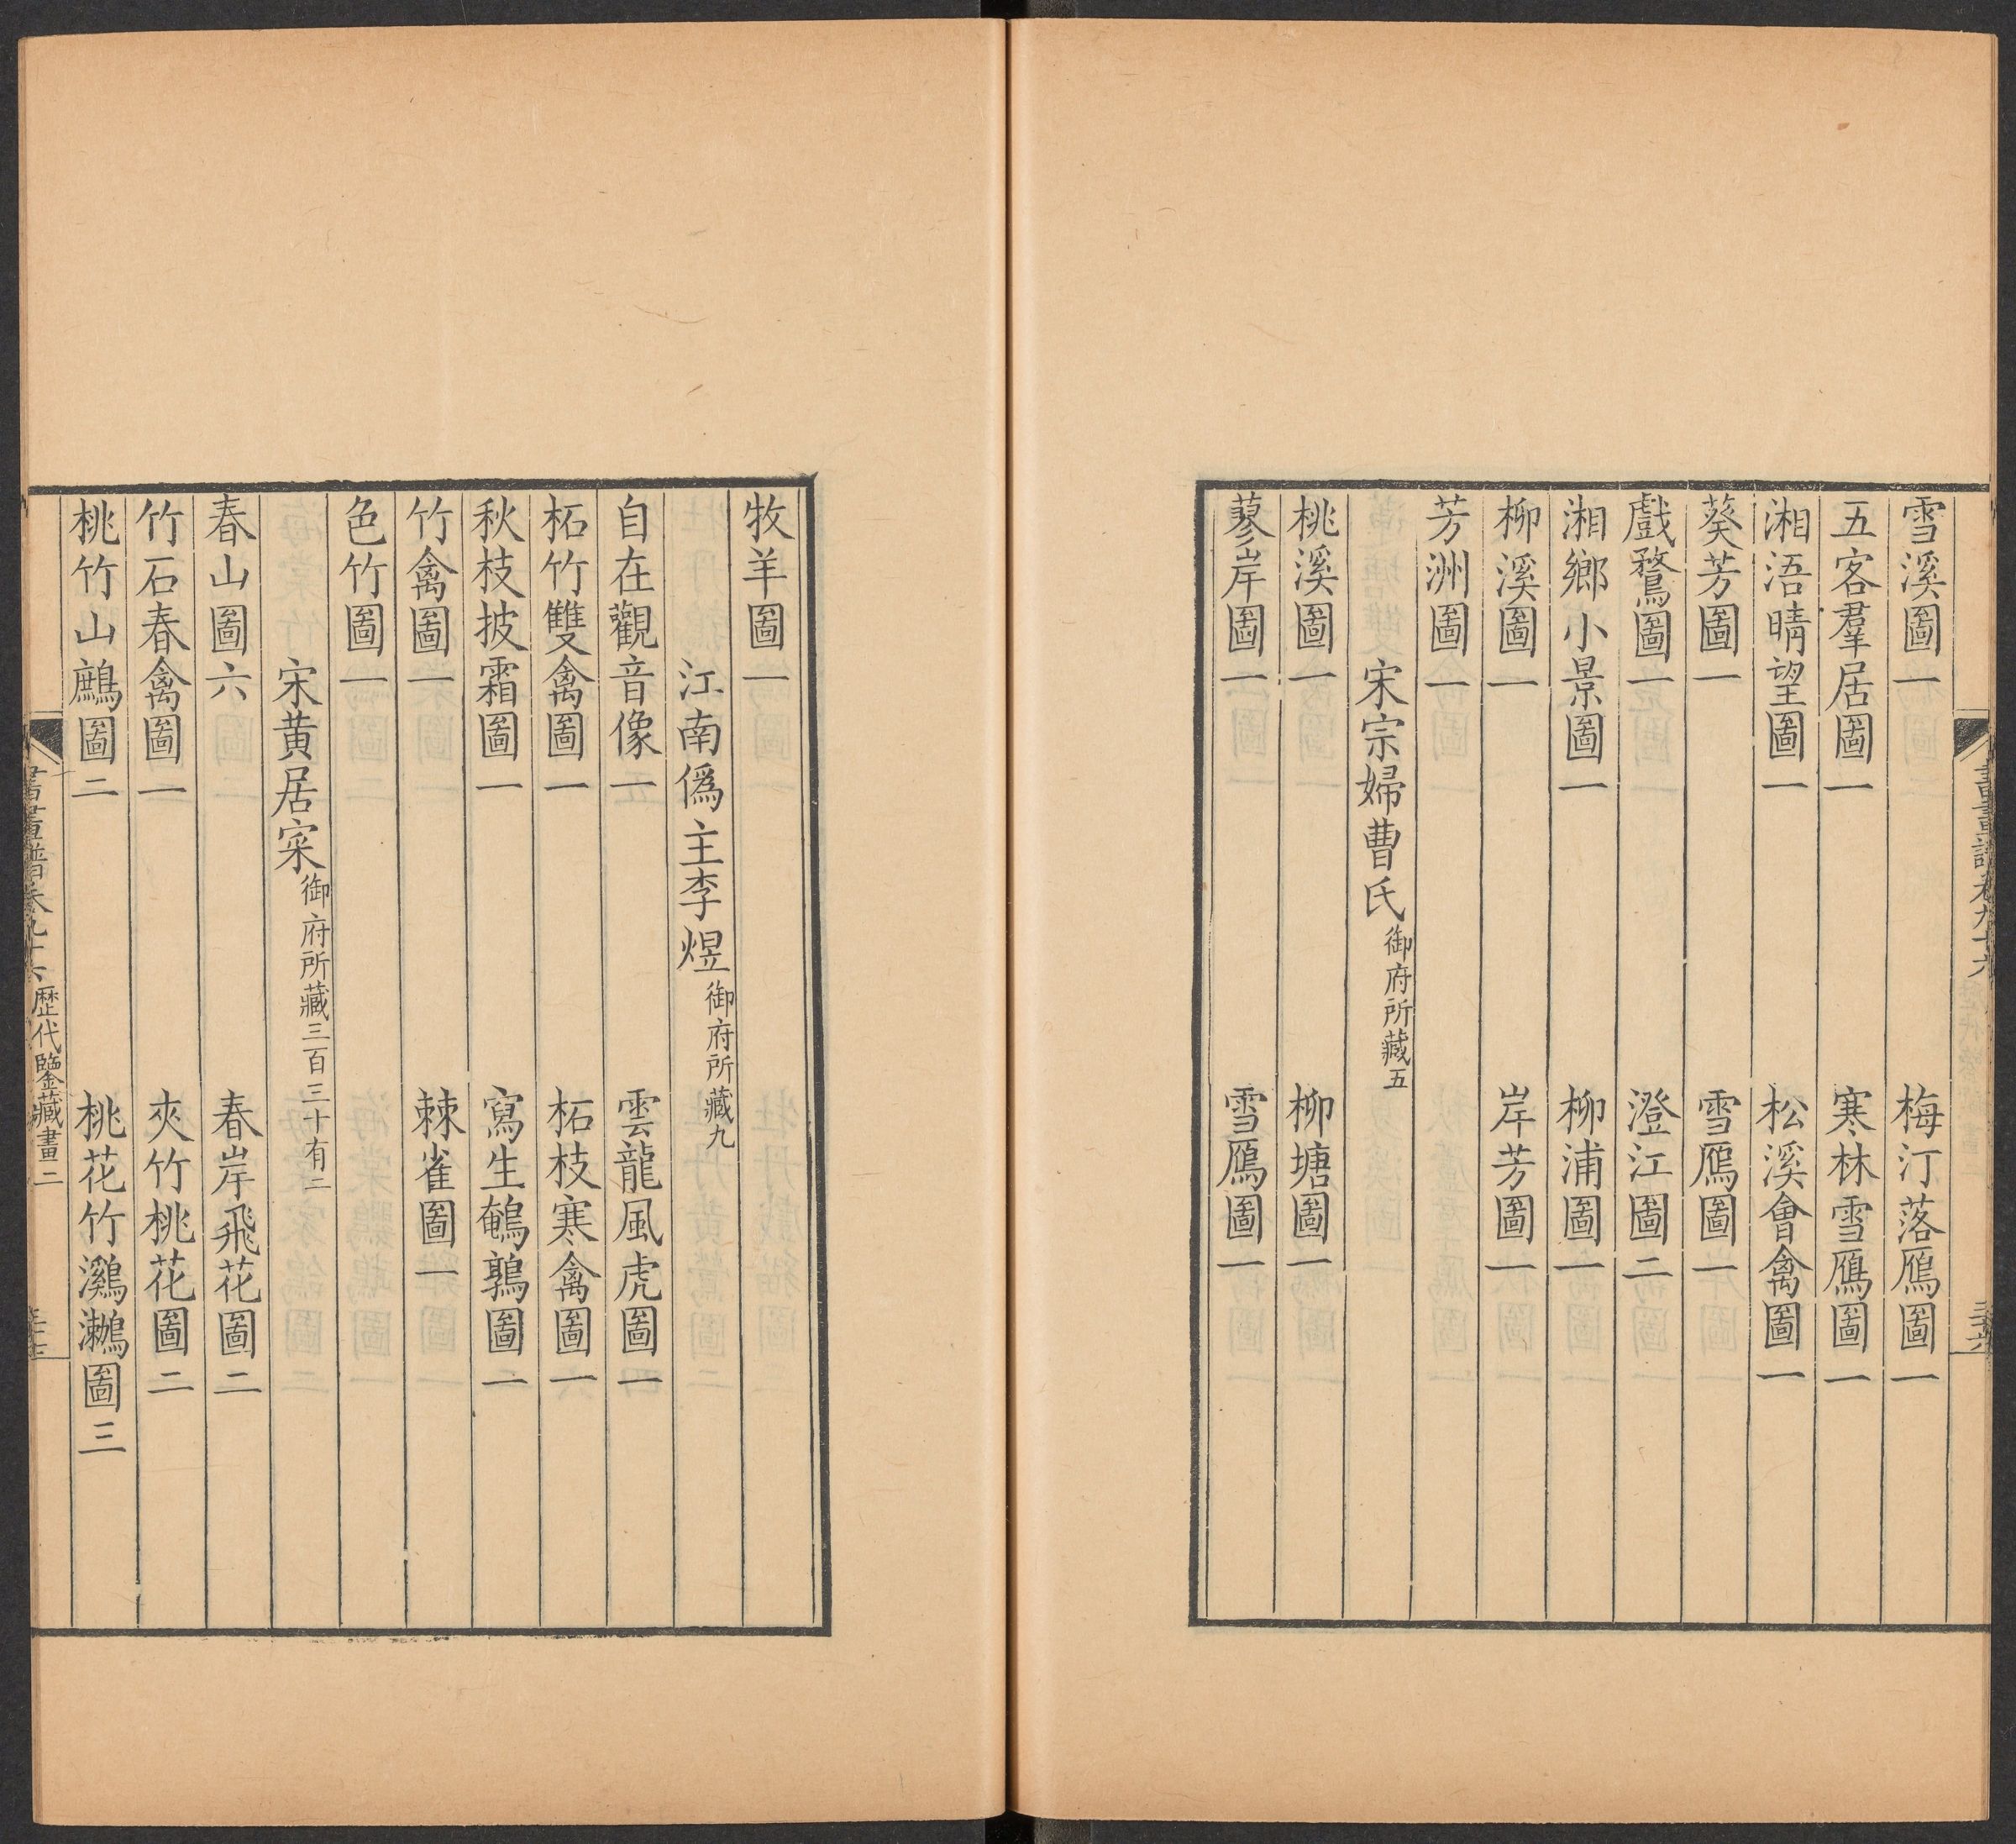 書畫譜卷九十六
雪溪圖一 梅汀落鴈圖一
五客羣居圖一 寒林雪鴈圖一
湘浯晴望圖一 松溪會禽圖一
葵芳圖一 雪鴈圖一
戲鶩圖一 澄江圖二
湘鄉小景圖一 柳浦圖一
柳溪圖一 岸芳圖一
芳洲圖一
宋宗婦曹氏御府所藏五
桃溪圖一 柳塘圖一
蓼岸圖一 雪鴈圖一
牧羊圖一
江南僞主李煜御府所藏九
自在觀音像一 雲龍風虎圖一
柘竹雙禽圖一 柘枝寒禽圖一
秋枝披霜圖一 寫生鵪鶉圖一
竹禽圖一 棘雀圖一
色竹圖一
宋黃居寀御府所藏三百三十有二
春山圖六 春岸飛花圖二
竹石春禽圖一 夾竹桃花圖二
桃竹山鷓圖二 桃花竹鸂鶒圖三
書畫譜卷九十六 歷代鑒藏畫二